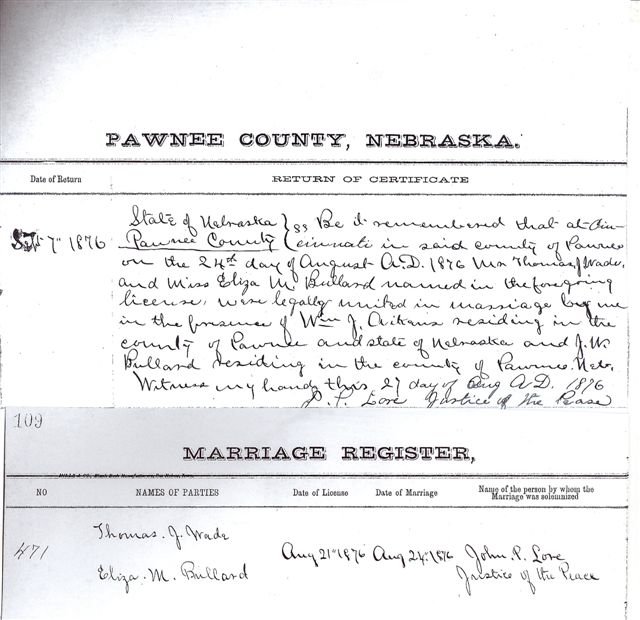 PAWNEE COUNTY, NEBRASKA.
Date of Return RETURN OF CERTIFICATE
State of Nebraska } ss Be it remembered that at Cin-
Sept 7th 1876 Pawnee County { cinnati in said county of Pawnee
on the 24th day of August A.D. 1876 Mr Thomas J Wade.
and Miss Eliza M Bullard named in the foregoing
license, were legally united in marriage by me
in the presence of Wm J. Aitkens residing in the
county of Pawnee and state of Nebraska and J. W.
Bullard residing in the county of Pawnee. Neb.
Witness my hand this 27 day of Aug A.D. 1876
J. P. Lore Justice of the Pease
109
MARRIAGE REGISTER,
NO NAMES OF PARTIES Date of License Date of Marriage Name of the person by whom the
Marriage was solemnized
Thomas. J. Wade
471 Aug 21st 1876 Aug 24th 1876 John. P. Lore
Eliza. M. Bullard Justice of the Peace